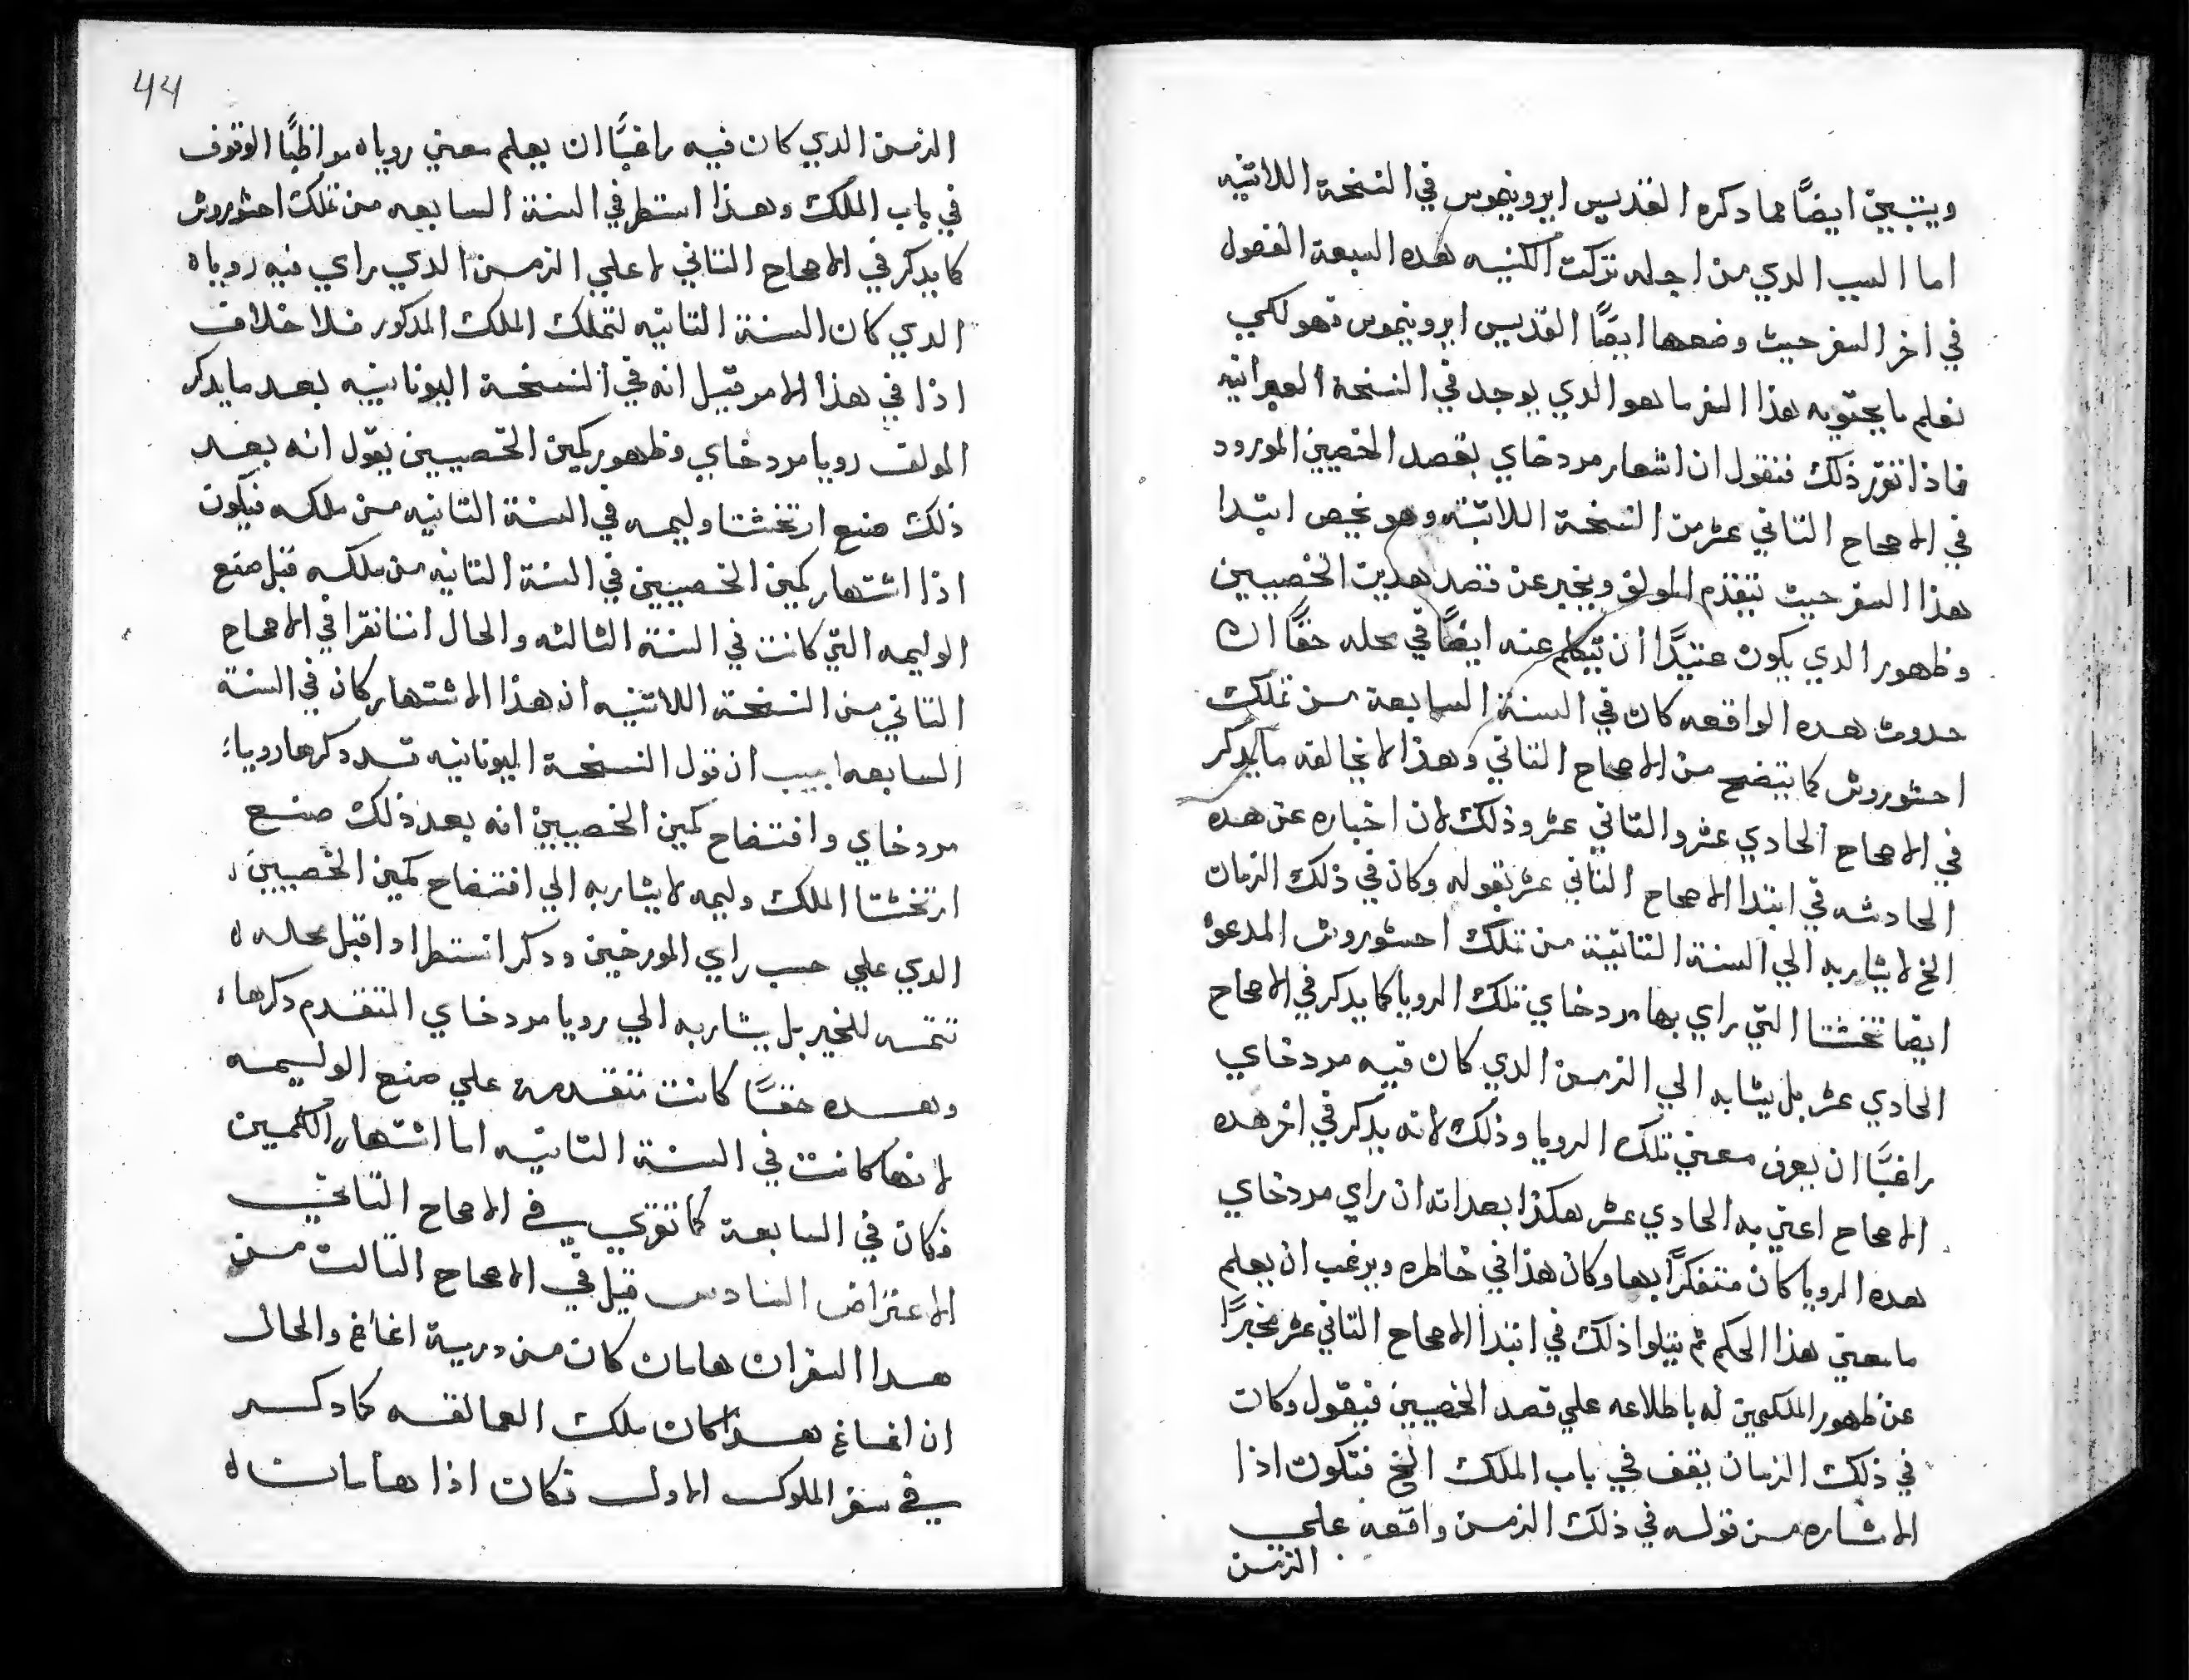 ويتبين ايضًا مما دكره القديس ايرونيموس في النسخة اللاتنيه
اما السبب الدي من اجله تركت الكنيسه هده السبعة الفصول
في اخر السفر حيث وضعها ايضًا القديس ايرونيموس فهو لكي
نعلم ما يحتويه هذا السفر ما هو الدي يوجد في النسخة العبرانيه
فاذا تقرر ذلك فنقول ان اشهار مردخاي بقصد الخصيين المورود
في الاصحاح التاني عشر من النسخة اللاتنيه وهو يخص ابتدا
هذا السفر حيث يتقدم المولف ويخبر عن قصد هدين الخصيين
وظهور الدي يكون عتيدًا ان يتكلم عنه ايضًا في محله حقًا ان
حدوث هده الواقعه كان في السنة السابعة من تملك
احشوروش كما يتضح من الاصحاح التاني وهذا لا يخالفه ما يدكر
في الاصحاح الحادي عشر والتاني عشر وذلك لان اخباره عن هده
الحادثه في ابتدا الاصحاح التاني عشر بقوله وكان في ذلك الزمان
الخ لا يشار به الي السنة التانية من تملك احشوروش المدعو
ايضا تخشتا التي راي بها مردخاي تلك الرويا كما يدكر في الاصحاح
الحادي عشر بل يشا به الي الزمن الدي كان فيه مردخاي
راغبًا ان يعرف معني تلك الرويا وذلك لانه يدكر في اخر هده
الاصحاح اعني به الحادي عشر هكذا بعد انه ان راي مردخاي
هده الرويا كان متفكرًا بها وكان هذا في خاطره ويرغب ان يعلم
ما معني هذا الحكم ثم يتلوا ذلك في ابتدا الاصحاح التاني عشر مخبرًا
عن ظهور الملكمين له باطلاعه علي قصد الخصيين فيقول وكان
في ذلك الزمان يقف في باب الملك الخ فتكون اذا
الاشاره من قوله في ذلك الزمن واقعه علي
الزمن
44
الزمن الدي كان فيه راغبًا ان يعلم معني روياه مواظبًا الوقوف
في باب الملك وهذا استطر في السنة السابعه من تملك احشوروش
كما يدكر في الاصحاح التاني لا علي الزمن الدي راي فيه روياه
الدي كان السنة التانيه لتملك الملك المدكور فلا خلاف
اذا في هذا الامر قيل انه في النسخة اليونانيه بعد ما يدكر
المولف رويا مردخاي وظهور كمين الخصيين يقول انه بعد
ذلك صنع ارتخشتا وليمه في السنة التانيه من ملكه فيكون
اذا اشتهار كمين الخصيين في السنة التانيه من ملكه قبل صنع
الوليمه التي كانت في السنة الثالثه والحال اننا نقرا في الاصحاح
التاني من النسخة اللاتنيه ان هذا الاشتهار كان في السنة
السابعه اجيب ان قول النسخة اليونانيه قد دكرها رويا
مردخاي وافتضاح كمين الخصيين انه بعد ذلك صنع
ارتخشتا الملك وليمه لا يشار به الي افتضاح كمين الخصيين
الدي علي حسب راي المورخين ودكر استطرادا قبل محله
تتمه للخبر بل يشار به الي رويا مردخاي المتقدم دكرها
وهده حقًا كانت متقدمه علي صنع الوليمه
لانها كانت في السنة التانيه اما اشتهار الكمين
فكان في السابعة كما تقري في الاصحاح التاني
الاعتراض السادس قيل في الاصحاح التالت من
هدا السفر ان هامان كان من درية اغاغ والحال
ان اغاغ هدا كان ملك العمالقه كما دكر
في سفر الملوك الاول فكان اذا هامان